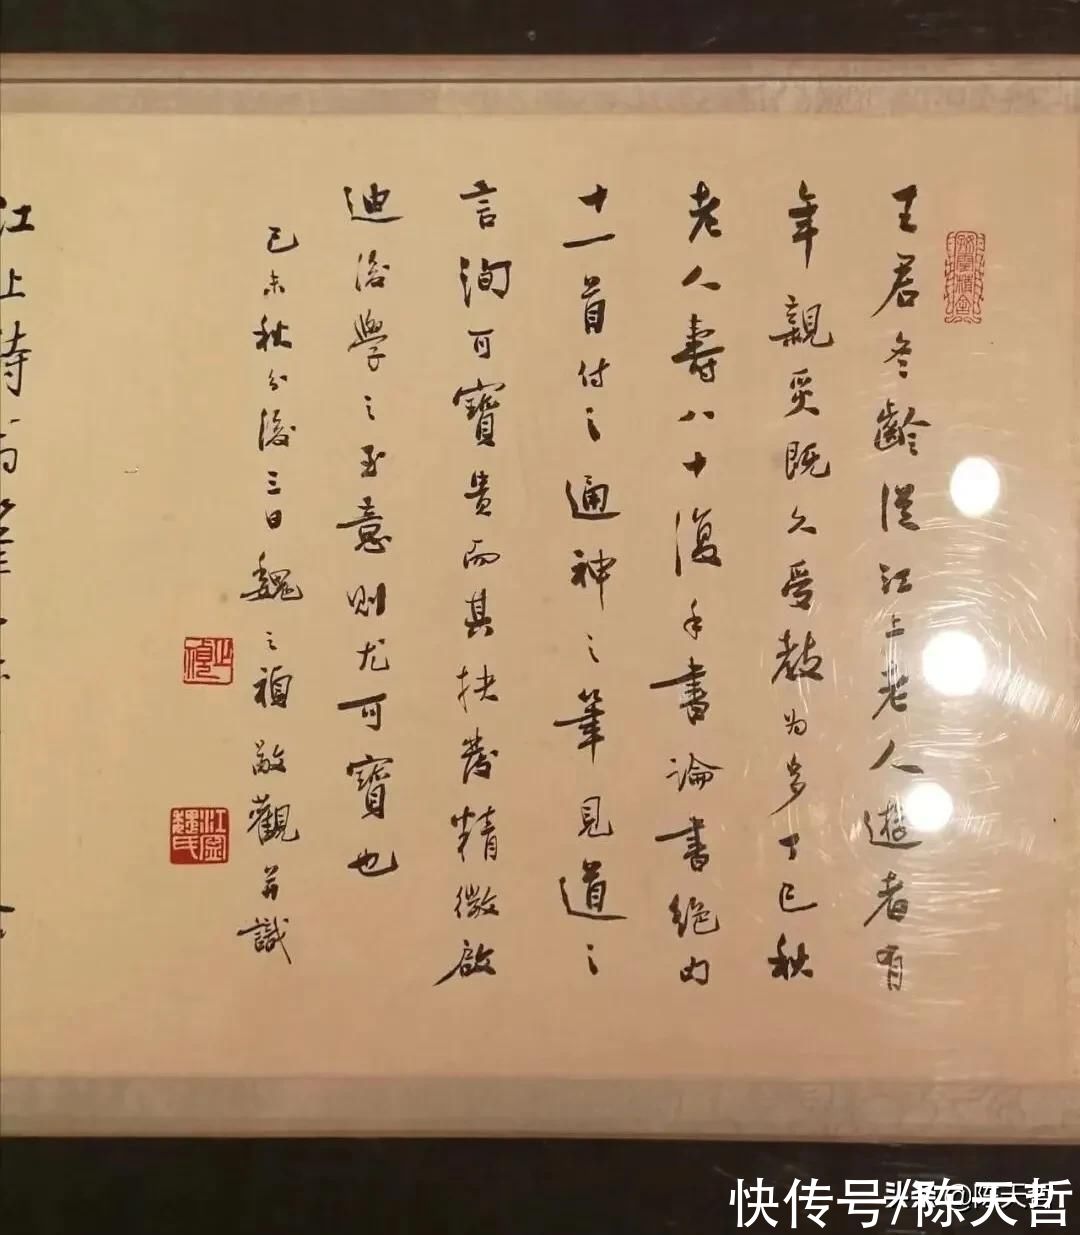 王君冬齡從江上老人遊者有
年親炙既久受教為多丁巳秋
老人壽八十復手書論書絕句
十一首付之通神之筆見道之
言洵可寶貴而其抉發精微啟
迪後學之至意則尤可寶也
己未秋分後三日魏之禎敬觀并識
之禎
江寧魏氏
江上
快传号/陈天哲